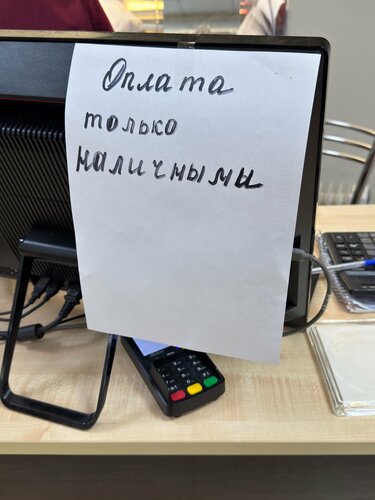 Оплата
только
наличными